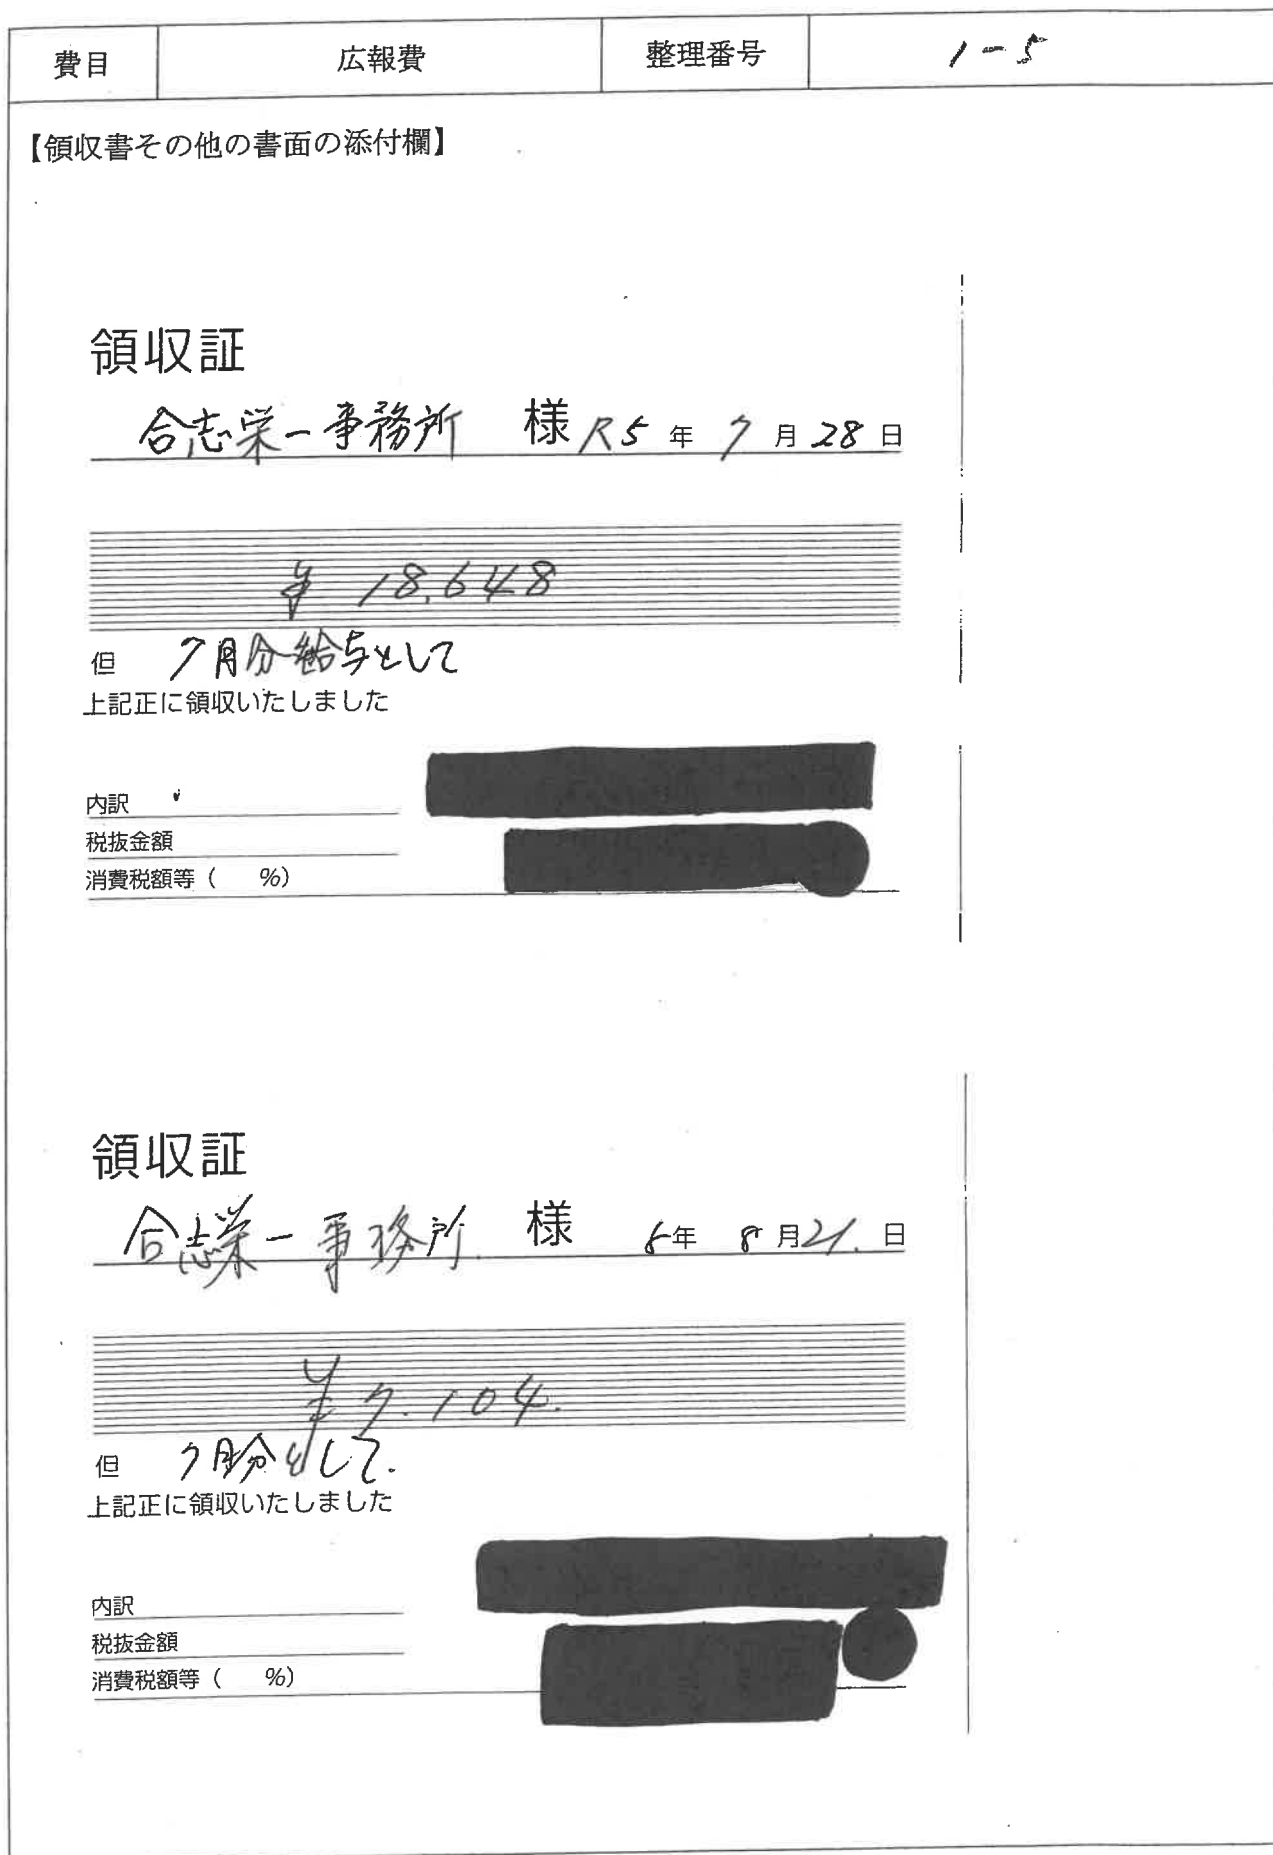 費目 広報費 整理番号 1-5
【領収書その他の書面の添付欄】
領収証
合志栄一事務所 様 R5年 7月28日
¥18,648
但 7月分給与として
上記正に領収いたしました
内訳
税抜金額
消費税額等( %)
領収証
合志栄一事務所 様 5年 8月21.日
¥7.104.
但 7月分として.
上記正に領収いたしました
内訳
税抜金額
消費税額等( %)